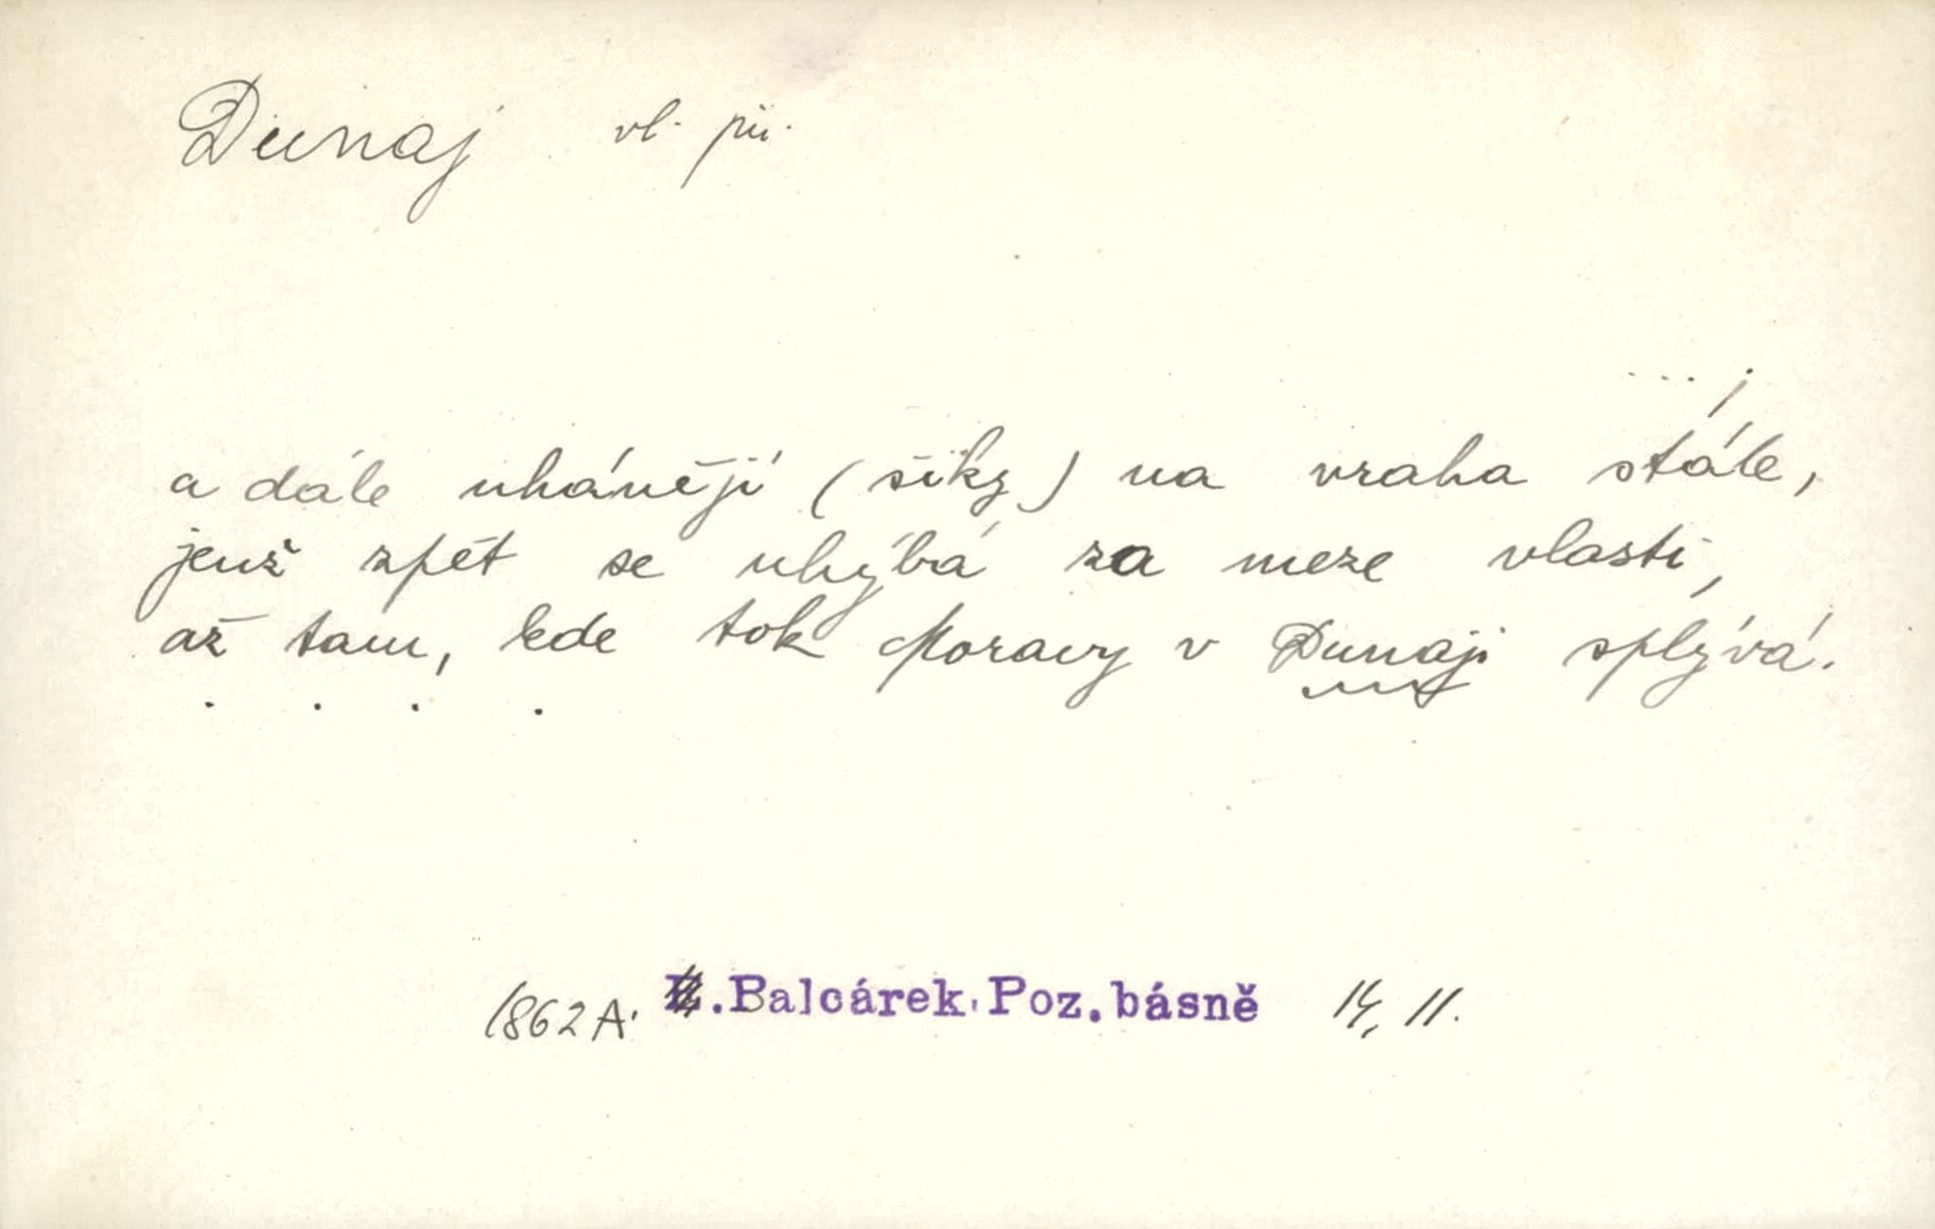 Dunaj vl. pří.
... ;
a dále uhánějí (šiky) na vraha stále,
jenž zpět se uhýbá za meze vlasti,
až tam, kde tok Moravy v Dunaji splývá.
. . . .
1862 A. .Balcárek, Poz. básně 14, 11.